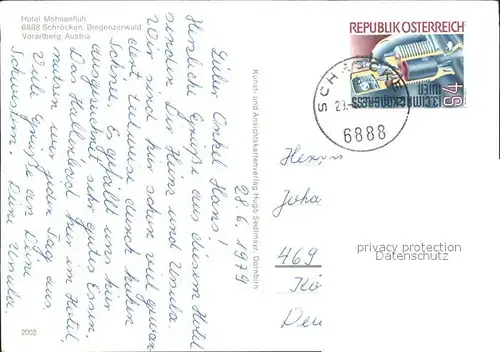 Hotel Mohnenfluh
6888 Schröcken, Bregenzerwald
Vorarlberg, Austria
28.6.1979
Lieber Onkel Hans!
Herzliche Grüße aus diesem Hotel
senden Dir Heinz und Ursula.
Wir sind hier schon viel gewan-
dert, teilweise durch hohen
Schnee. Es gefällt uns hier
ausgezeichnet, sehr gutes Essen.
Das Hallenbad hier im Hotel,
nutzen wir jeden Tag aus.
Viele Grüße an Deine
Schwestern. Deine Ursula.
2002
Konst- und Ansichtskartenverlag Hugo Sedlmayr, Dornbirn
REPUBLIK ÖSTERREICH
13. CIMAC-KONGRESS
WIEN
S4
SCHRÖCKEN
6888
Herrn
Joha
469
Deu
privacy protection
Datenschutz